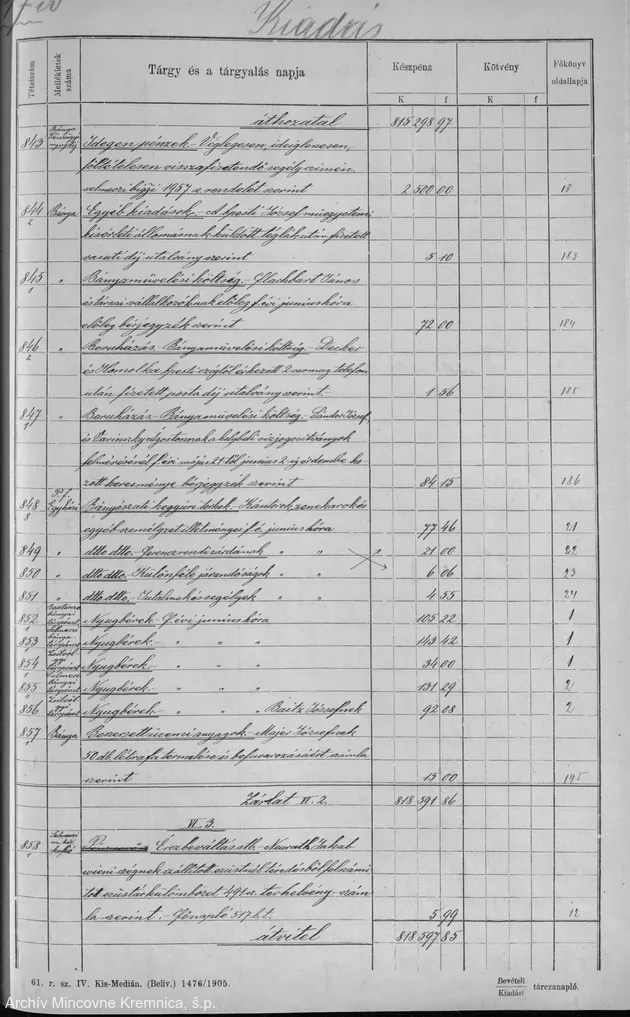 Kiadás
Tételszám Mellékletek száma Tárgy és a tárgyalás napja Készpénz Kötvény Főkönyv oldallapja
K f K f
áthozatal 815298 97
843 Idegen pénzek – Véglegesen, ideiglenesen,
föltételesen visszafizetendő segély czimén
selmeczi 1957 sz. rendelet szerint 2500 00 18
844 2 Bánya Egyéb kiadások – A József műegyetemi
kisérleti állomásnak küldött téglák után fizetett
vasuti díj utalvány szerint 5 10 183
845 1 " Bányaművelési költség. – Flachbart János
és társai vállalkozóknak előleg f. évi junius hóra
előleg bérjegyzék szerint 72 00 184
846 2 " Beruházás. – Bányaművelési költség. – Decker
és Homolka pesti czégtől érkezett 2 csomag telefon
után fizetett posta díj utalvány szerint. 1 56 185
847 1 " Beruházás. – Bányaművelési költség. – Sándor József
és Varinszky Ágostonnak a helybeli vizjogositványok
felmérésénél f. évi május 21 től junius 2 ig
keresménye bérjegyzék szerint 84 15 186
848 8 P. f. Egyházi Bányászati kegyúri terhek. – Kántorok, zenekarok és
egyéb személyzet illetményei f. é. junius hóra 77 46 21
849 " dtto dtto. – Ferenczrendi zárdának " " 21 00 22
850 " dtto dtto. – Különféle járandóságok " " 6 06 23
851 " dtto dtto. – Jutalmak és segélyek " " 4 55 24
852 Nyugbérek – f. évi junius hóra 105 22 1
853 Nyugbérek. – " " " 143 42 1
854 Nyugbérek. – " " " 34 00 1
855 Nyugbérek. – " " " 131 29 2
856 Nyugbérek. – " " " Baitz Józsefnek 92 08 2
857 1 Bánya Beszerzett üzemi anyagok. – Majer Józsefnek
50 db. létrafa termelése és befuvarozásáért számla
szerint 15 00 195
Zárlat VI. 2. 818591 86
VI. 3.
858 1 Érczbeváltás stb. – Neurath Jakab
wieni czégnek szállított ezüstnél
ezüstár különbözet 491 sz. terhelvény szám-
la szerint. – Főnapló 517 l. t. 5 99 12
átvitel 818597 85
61. r. sz. IV. Kis-Medián. (Beliv.) 1476/1905.
Bevételi
Kiadási tárczanapló.
Archív Mincovne Kremnica, š.p.